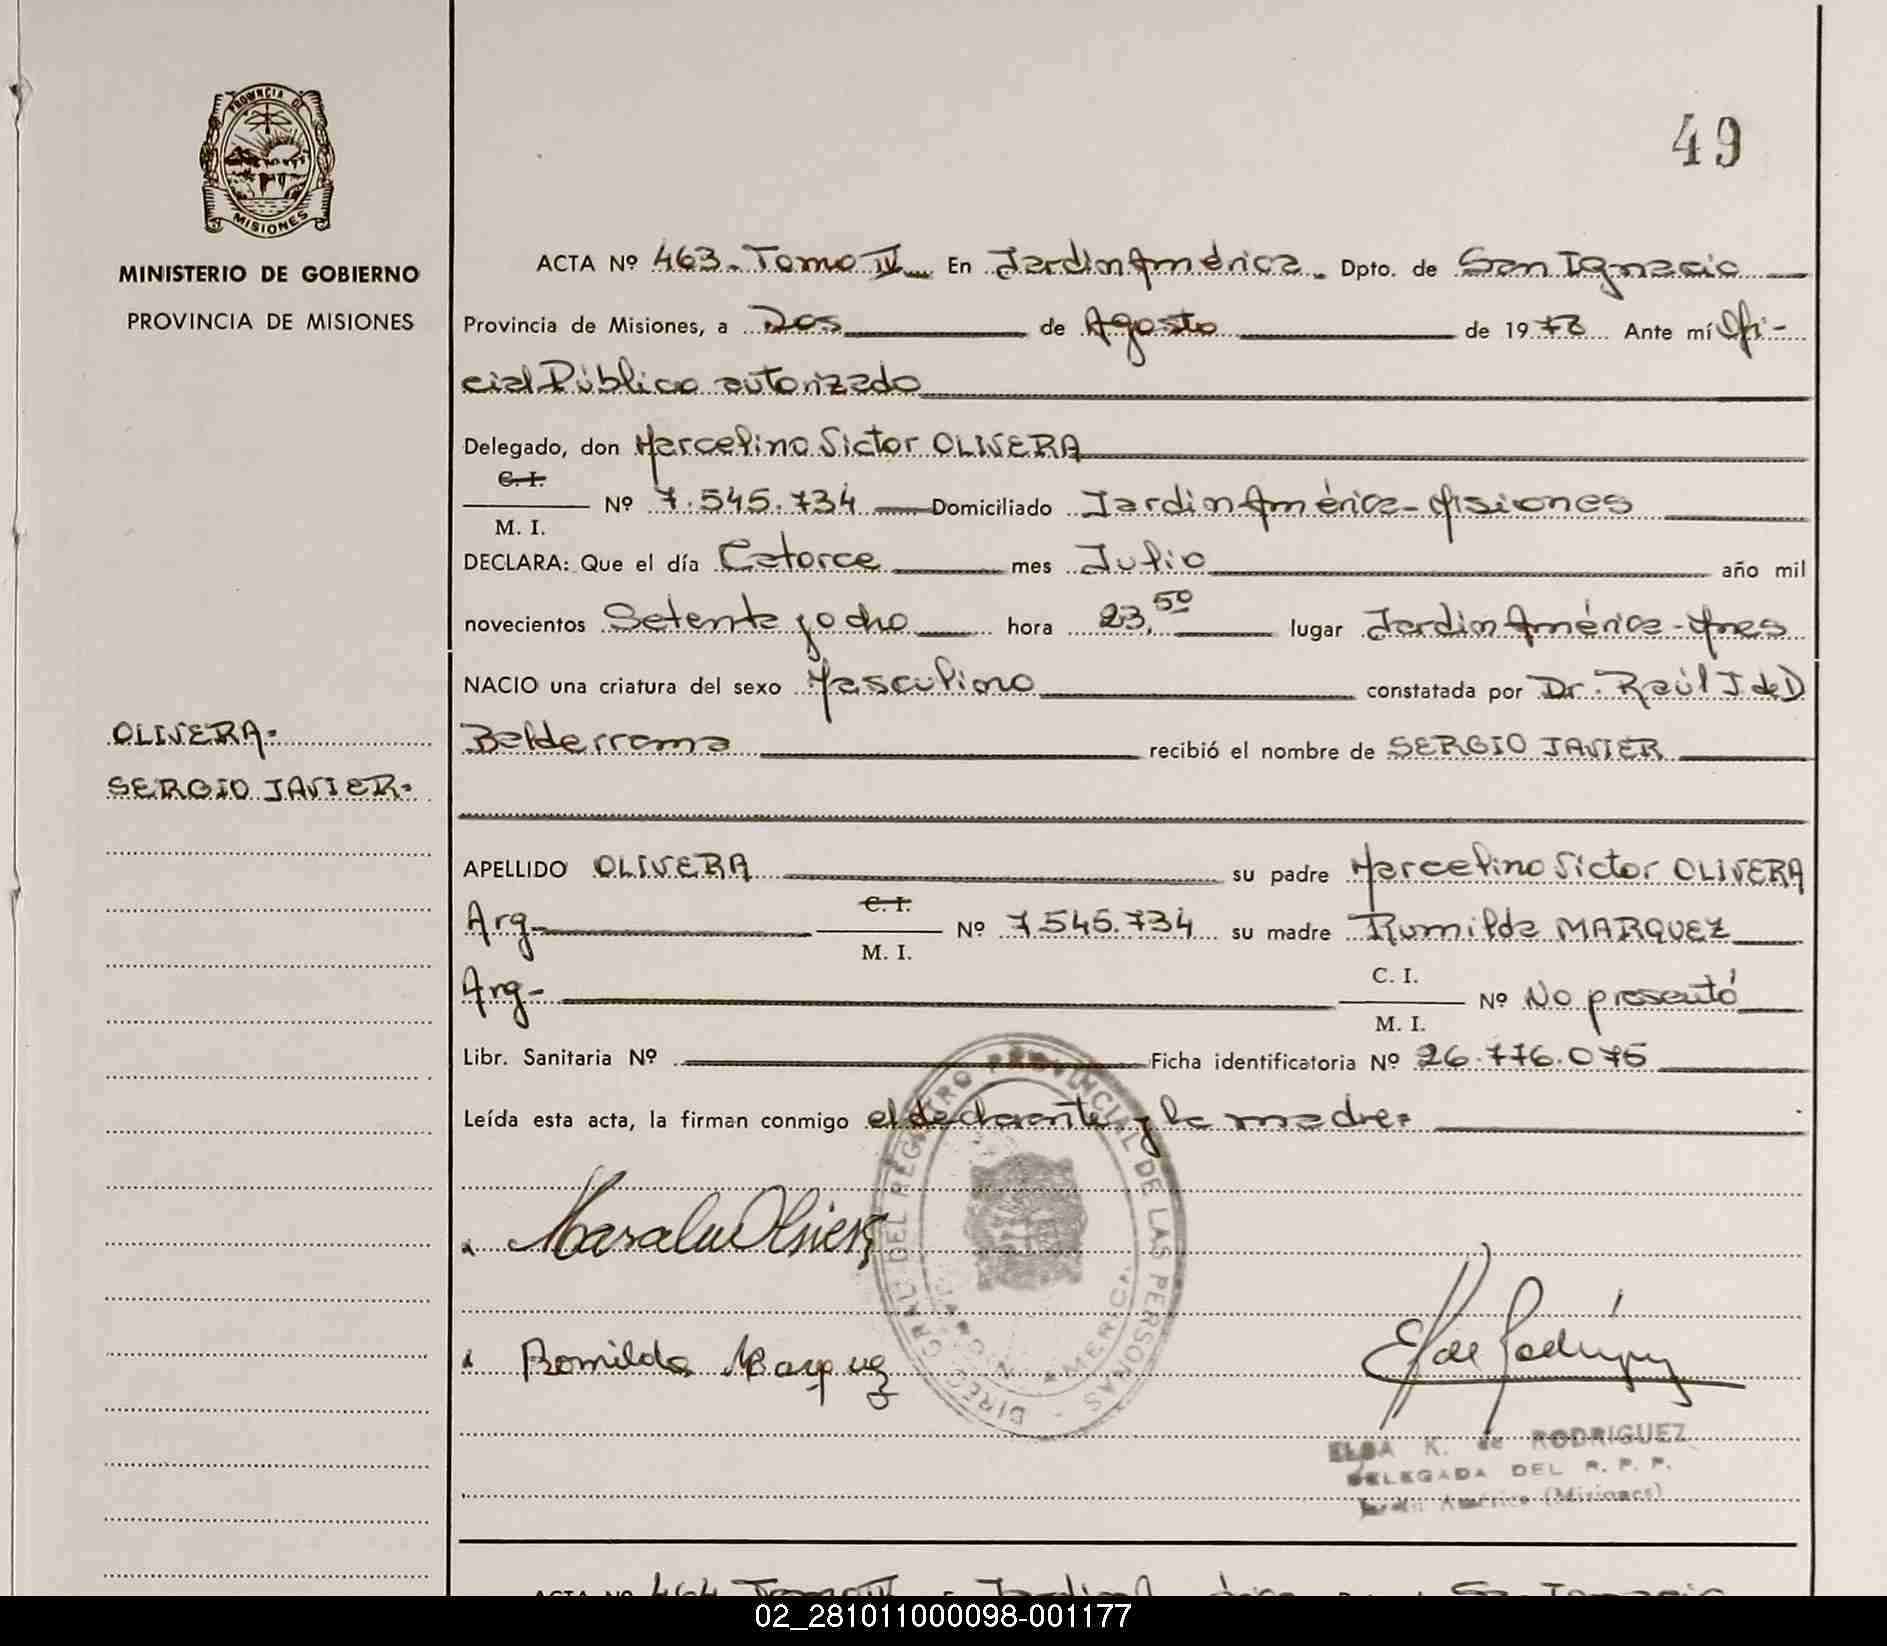 PROVINCIA DE
MISIONES
MINISTERIO DE GOBIERNO
PROVINCIA DE MISIONES
49
ACTA Nº 463.- Tomo IV.- En Jardin América.- Dpto. de San Ignacio
Provincia de Misiones, a Dos de Agosto de 1978 Ante mí Ofi-
cial Público autorizado
Delegado, don Marcelino Victor OLIVERA
C. I.
Nº 7.545.734 Domiciliado Jardin América - Misiones
M. I.
DECLARA: Que el día Catorce mes Julio año mil
novecientos Setenta y ocho hora 23,50 lugar Jardin América - Mnes
NACIO una criatura del sexo Masculino constatada por Dr. Raúl J de D
OLIVERA-
Balderrama recibió el nombre de SERGIO JAVIER
SERGIO JAVIER-
APELLIDO OLIVERA su padre Marcelino Victor OLIVERA
C. I.
Arg- Nº 7.545.734 su madre Rumilda MARQUEZ
M. I.
C. I.
Arg- Nº No presentó
M. I.
Libr. Sanitaria Nº Ficha identificatoria Nº 26.776.075
Leída esta acta, la firman conmigo el declarante y la madre-
DIREC. GRAL. DEL REGISTRO PROVINCIAL DE LAS PERSONAS
Romilda Marquez
ELSA K. de RODRIGUEZ
DELEGADA DEL R. P. P.
América (Misiones)
ACTA Nº 464 Tomo IV En Jardin América
02_281011000098-001177